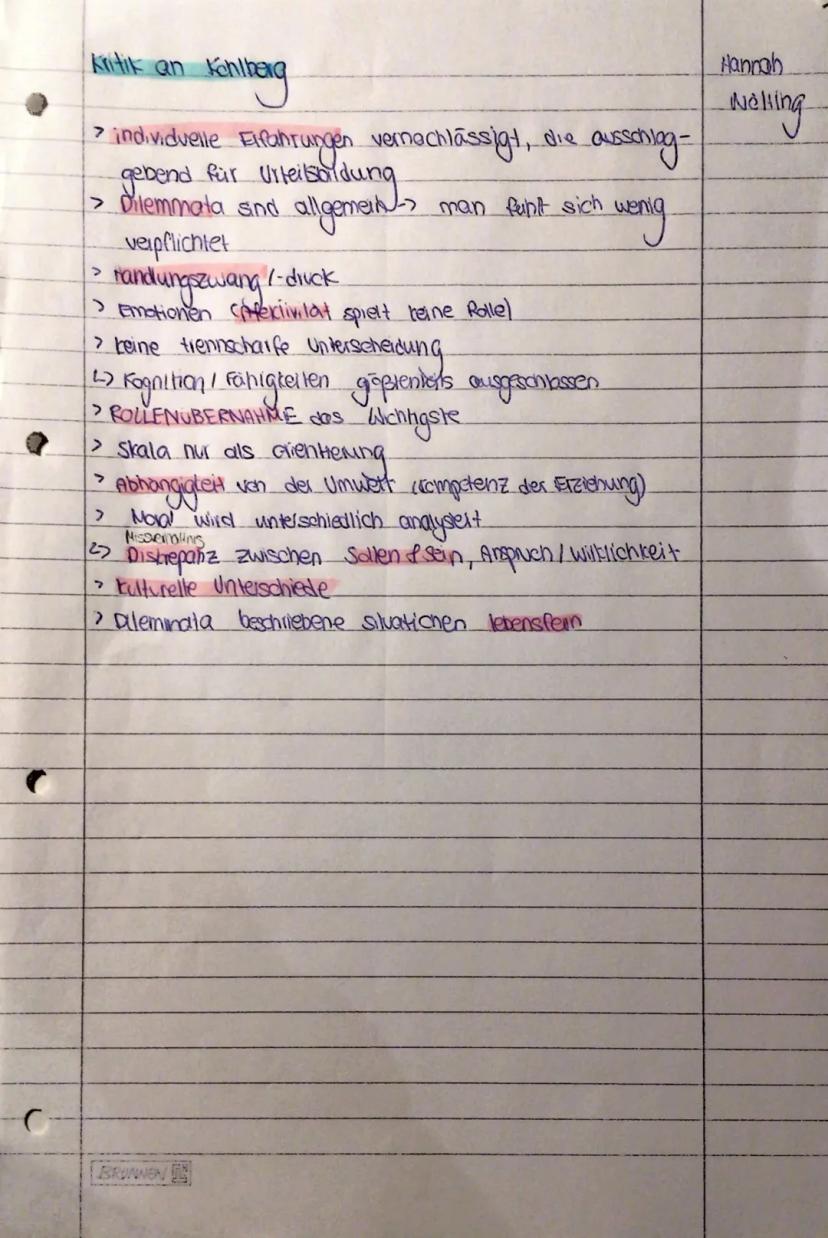 Kritik an Kohlberg
Hannah
Nölling
> individuelle Erfahrungen vernachlässigt, die ausschlag-
gebend für Urteilsbildung
> Dilemmata sind allgemein -> man fühlt sich wenig
verpflichtet
> Handlungszwang /-druck
> Emotionen (Affektivität spielt keine Rolle)
> keine trennscharfe Unterscheidung
↳ Kognition / Fähigkeiten größtenteils ausgeschlossen
> ROLLENÜBERNAHME das Wichtigste
> Skala nur als Orientierung
> Abhängigkeit von der Umwelt (Kompetenz der Erziehung)
> Moral wird unterschiedlich analysiert
↳ Diskrepanz zwischen Sollen & sein, Anspruch / Wirklichkeit
> kulturelle Unterschiede
> Dilemmata beschriebene Situationen lebensfern
BRUNNEN